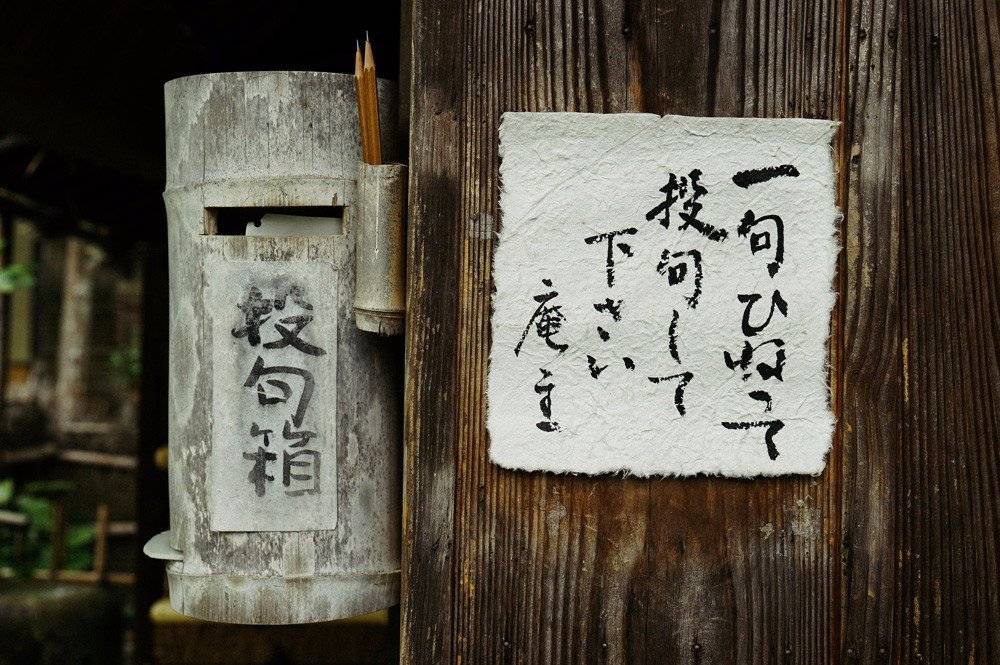 投句箱
一句ひねって
投句して
下さい
庵主